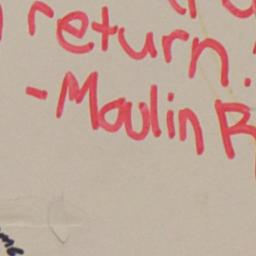 return.
-Moulin R